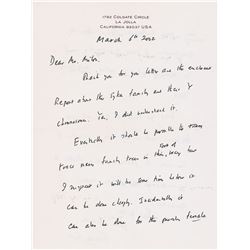 1792 COLGATE CIRCLE
LA JOLLA
CALIFORNIA 92037 USA
March 6th 2002
Dear Mr.
Thank you for your letter and the enclosed
Report about the Sykes family and their Y
chromosomes. Yes, I did understand it.
Eventually it should be possible to
trace family trees in this way but
sort of
I suspect it will be some time before it
can be done cheaply. Incidentally it
can also be done for the female